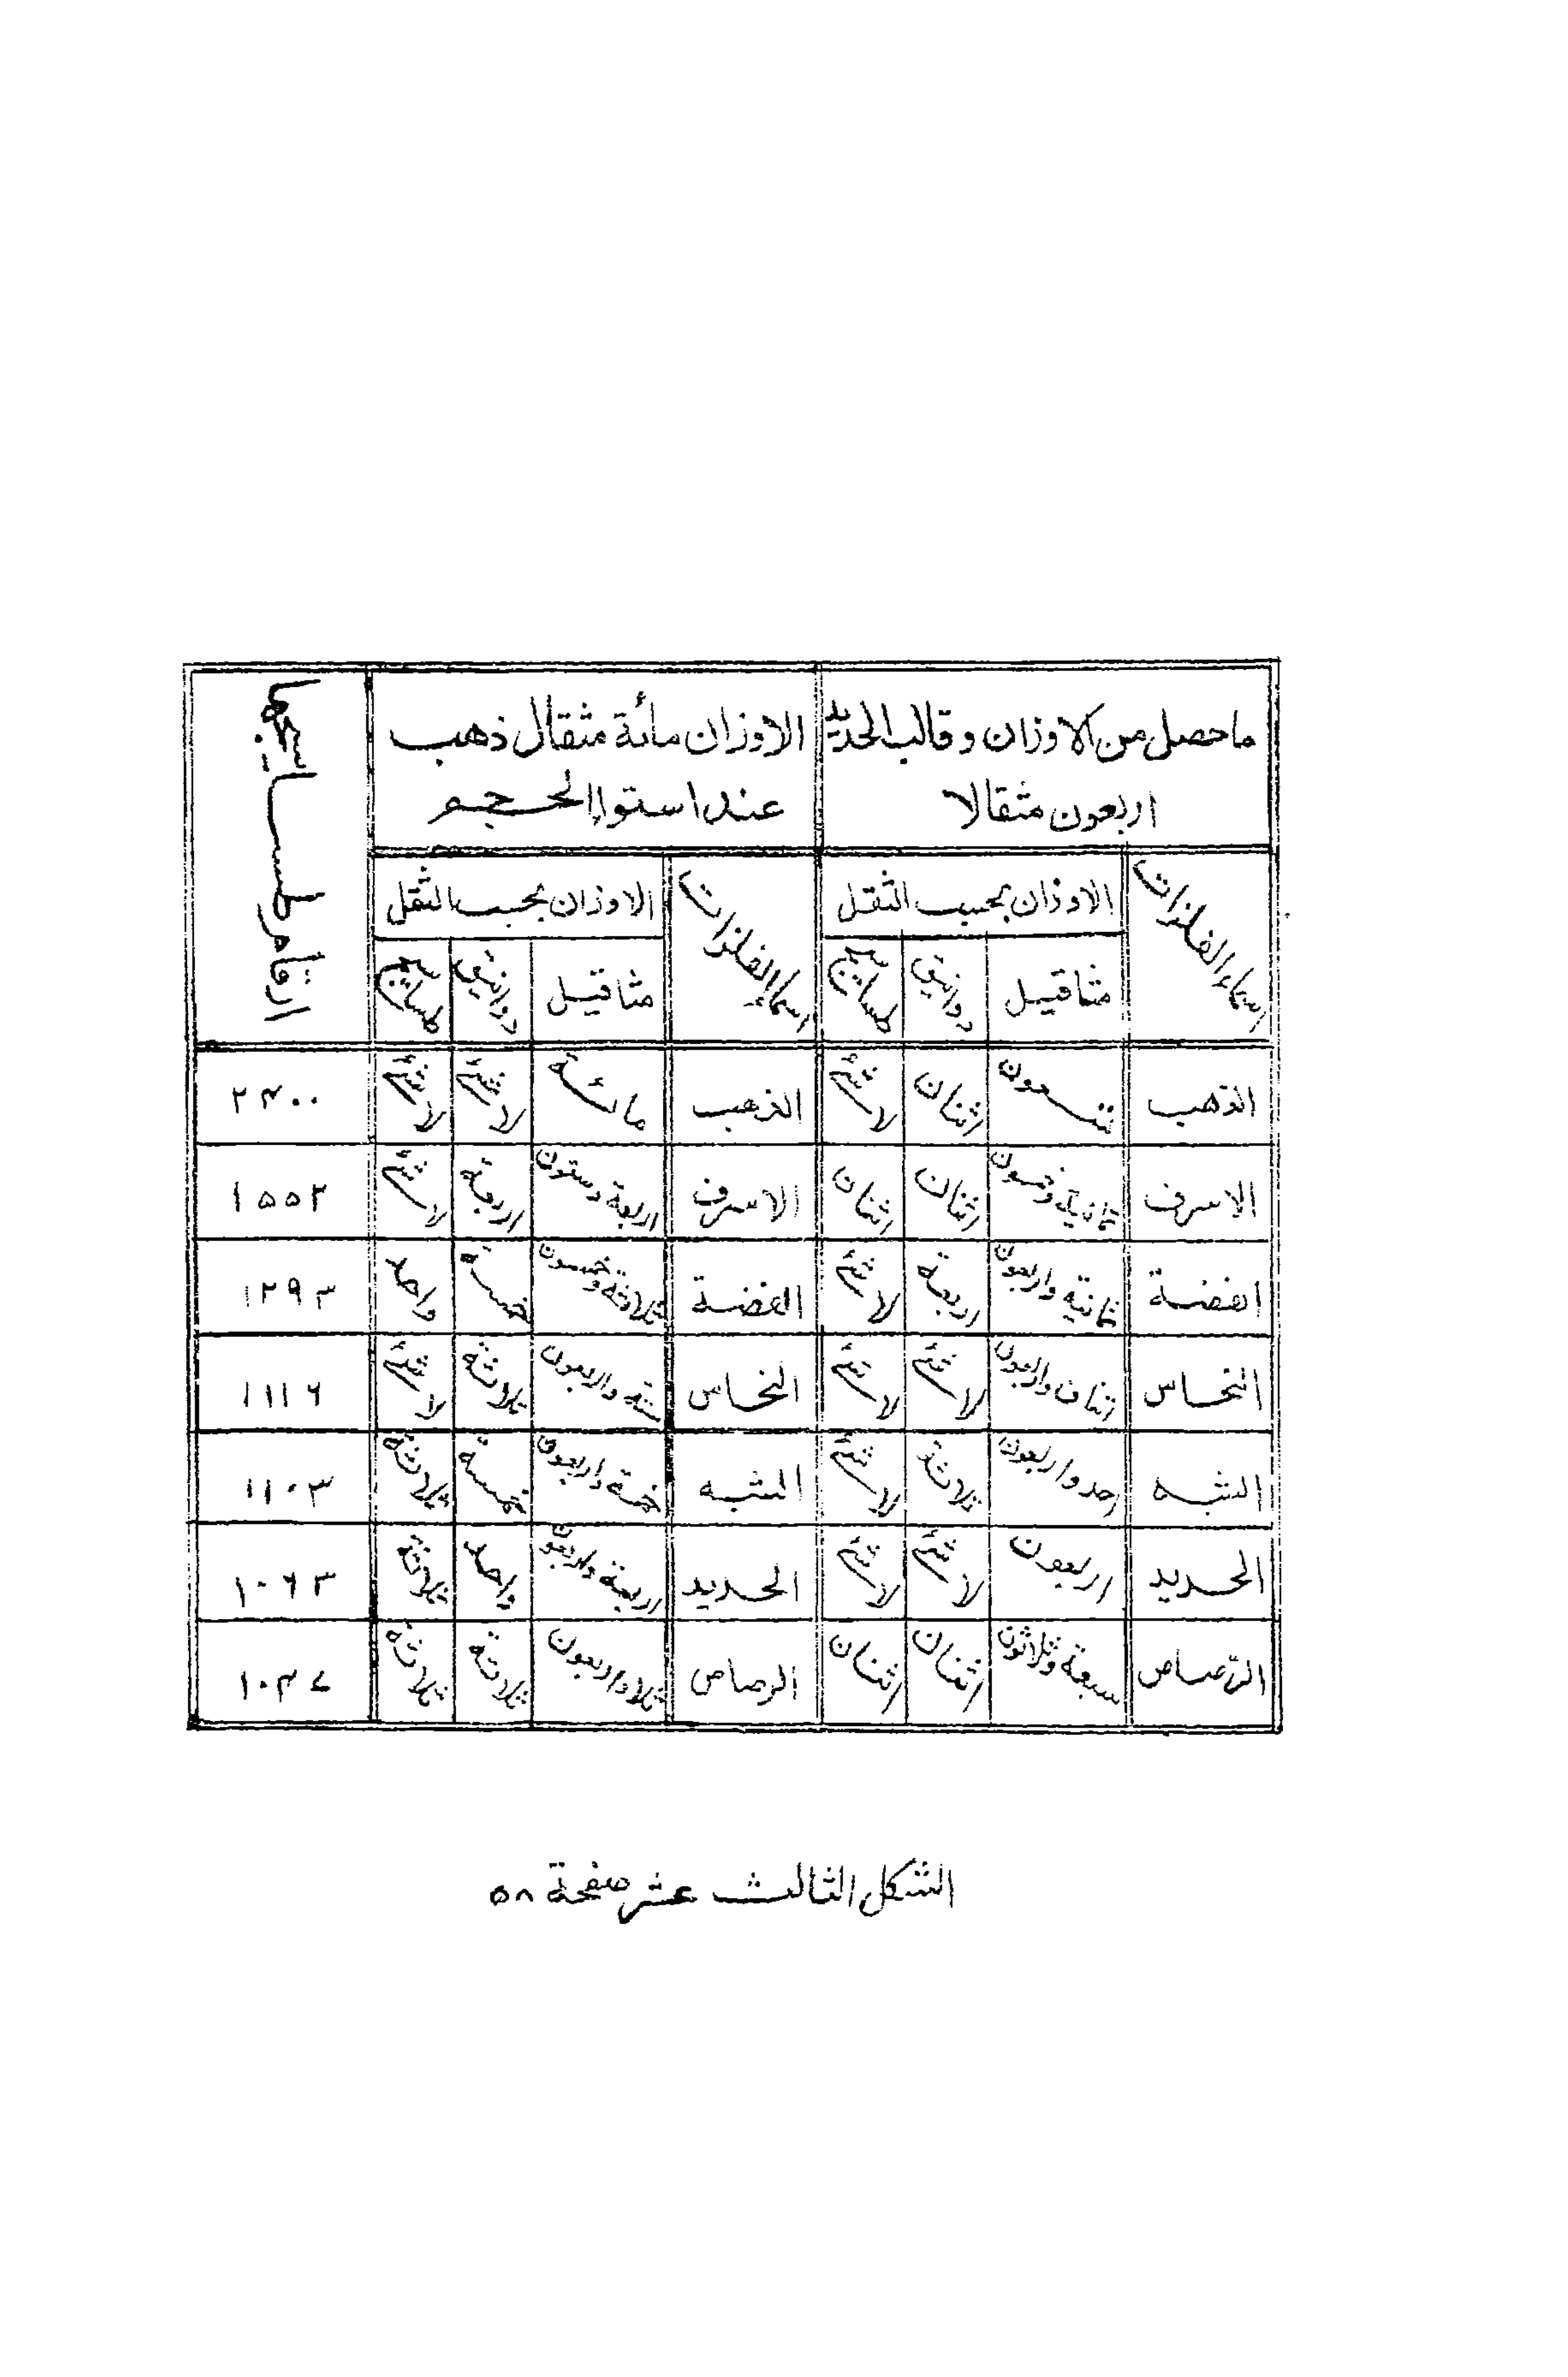 ما حصل من الاوزان وقالب الحديد
اربعون مثقالا
الاوزان مائة مثقال ذهب
عند استواء الحجم
ارقام طساسيجها
اسماء الفلزات
الاوزان بحسب الثقل
اسماء الفلزات
الاوزان بحسب الثقل
مثاقيل دوانيق طساسيج مثاقيل دوانيق طساسيج
الذهب تسعون اثنان لا شئ الذهب مائة لا شئ لا شئ ٢٤٠٠
الاسرف ثمانية وخمسون اثنان اثنان الاسرف اربعة وستون اربعة لا شئ ١٥٥٢
الفضة ثمانية واربعون اربعة لا شئ الفضة ثلاثة وخمسون خمسة واحد ١٢٩٣
النحاس اثنان واربعون لا شئ لا شئ النحاس ستة واربعون ثلاثة لا شئ ١١١٦
الشبه احد واربعون ثلاثة لا شئ الشبه خمسة واربعون خمسة ثلاثة ١١٠٣
الحديد اربعون لا شئ لا شئ الحديد اربعة واربعون واحد ثلاثة ١٠٦٣
الرّصاص سبعة وثلاثون اثنان اثنان الرصاص ثلاث واربعون ثلاثة ثلاثة ١٠٤٧
الشكل الثالث عشر صفحة ٥٨